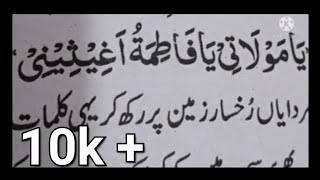 "يَا مَوْلَاتِيْ يَا فَاطِمَةُ اَغِيْثِيْنِيْ"
دایاں رُخسار زمین پر رکھ کر یہی کلمات
10k +